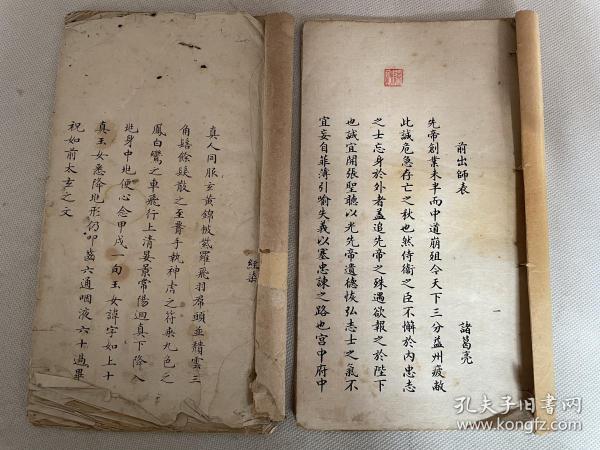 前出師表
諸葛亮
先帝創業未半而中道崩殂今天下三分益州疲敝
此誠危急存亡之秋也然侍衛之臣不懈於內忠志
之士忘身於外者蓋追先帝之殊遇欲報之於陛下
也誠宜開張聖聽以光先帝遺德恢弘志士之氣不
宜妄自菲薄引喻失義以塞忠諫之路也宮中府中
真人同服玄黃錦帔紫羅飛羽帬頭並積雲三
角髻餘髮散之至手執神虎之符乘九色之
鳳白鸞之車飛行上清晏景常陽迴真下降入
兆身中兆便心念甲戌一旬玉女諱字如上十
真玉女悉降兆形仍叩齒六通咽液六十過畢
祝如前太玄之文
孔夫子旧书网
www.kongfz.com